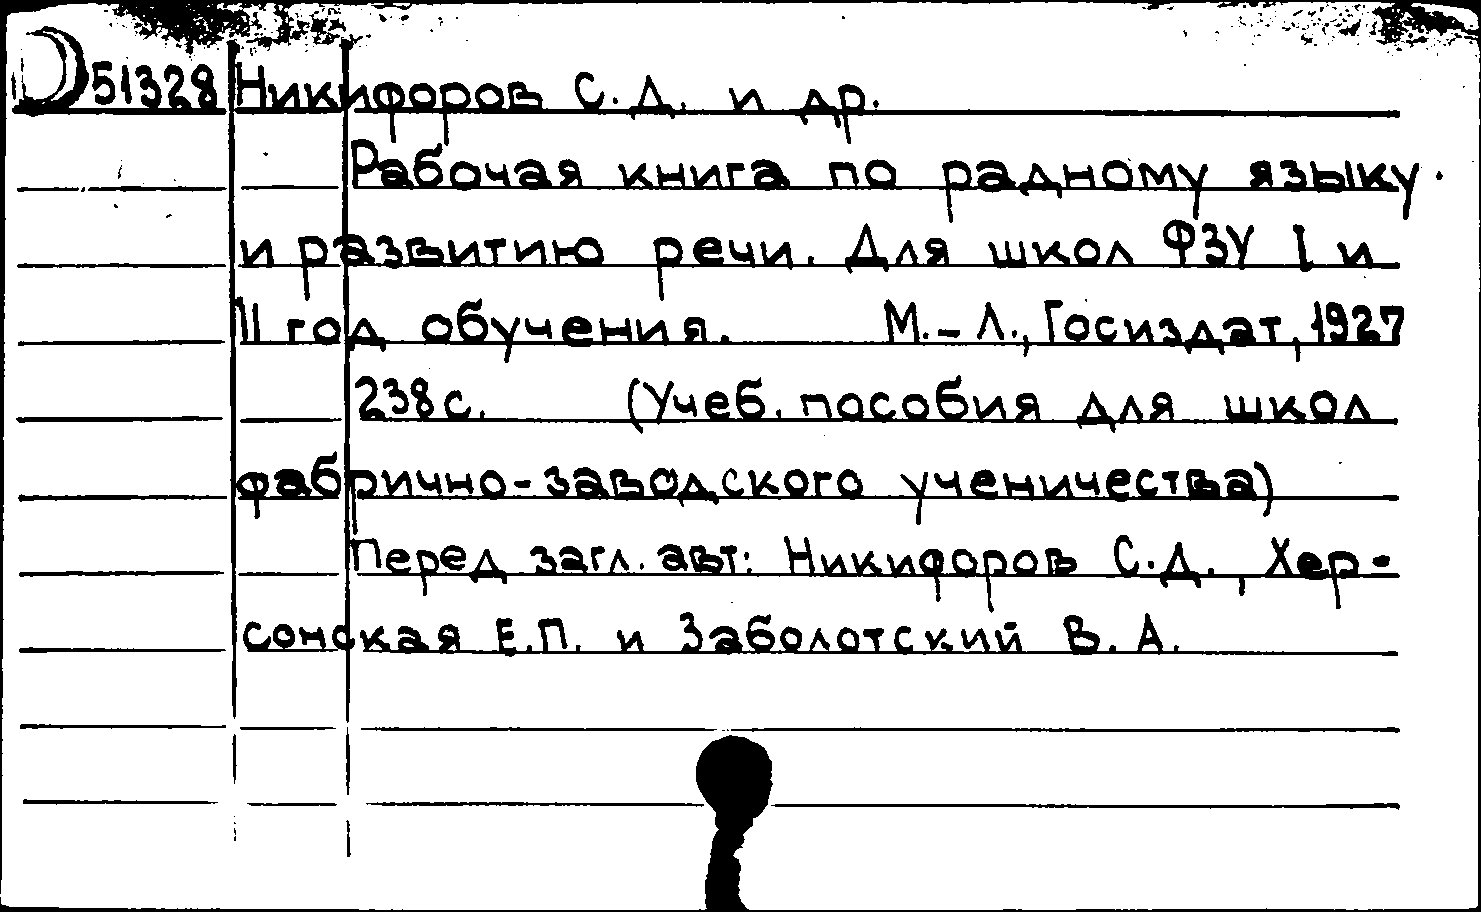 51328 Никифоров С.Д. и др.
Рабочая книга по радному языку.
и развитию речи. Для школ ФЗУ I и
II год обучения. М.-Л., Госиздат, 1927
238с. (Учеб. пособия для школ
фабрично-заводского ученичества)
Перед загл. авт: Никифоров С.Д., Хер-
сонская Е.П. и Заболотский В.А.